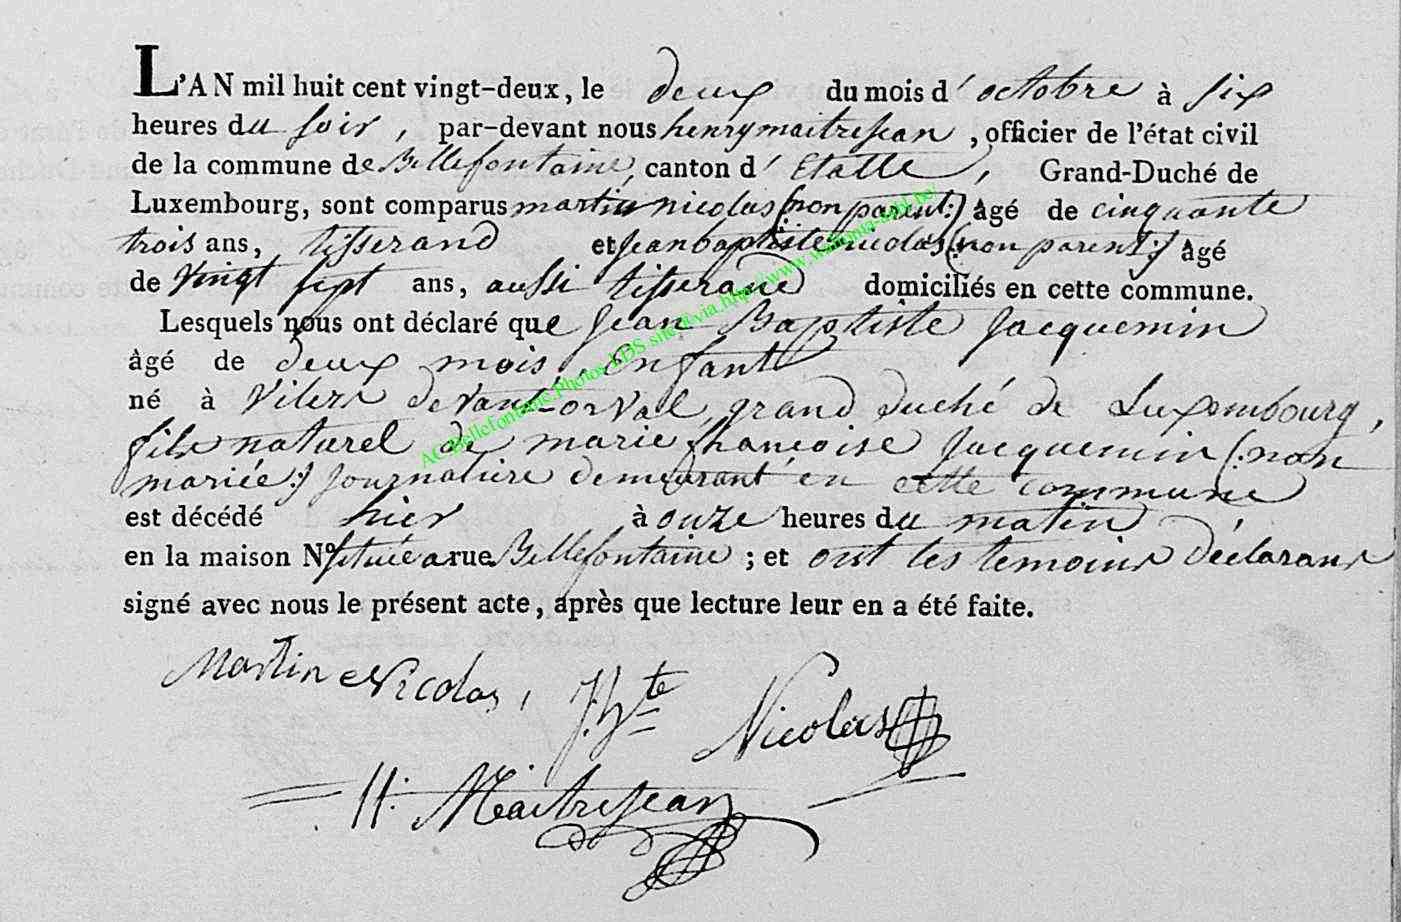 L'AN mil huit cent vingt-deux, le deux du mois d'octobre à six
heures du soir, par-devant nous henry maitrejean, officier de l'état civil
de la commune de Bellefontaine, canton d'Etalle, Grand-Duché de
Luxembourg, sont comparus martin nicolas (: non parent :) âgé de cinquante
trois ans, tisserand et jean baptiste nicolas (: non parent :) âgé
de vingt sept ans, aussi tisserand domiciliés en cette commune.
Lesquels nous ont déclaré que Jean Baptiste Jacquemin
âgé de deux mois, enfant
né à Vilers devant-orval, grand duché de Luxembourg,
fils naturel de marie françoise Jacquemin (: non
mariée :) journalière demeurant en cette commune
est décédé hier à onze heures du matin
en la maison Nº située a rue Bellefontaine ; et ont les temoins déclarans
signé avec nous le présent acte, après que lecture leur en a été faite.
Martin Nicolas, J. Bte Nicolas
H. Maitrejean